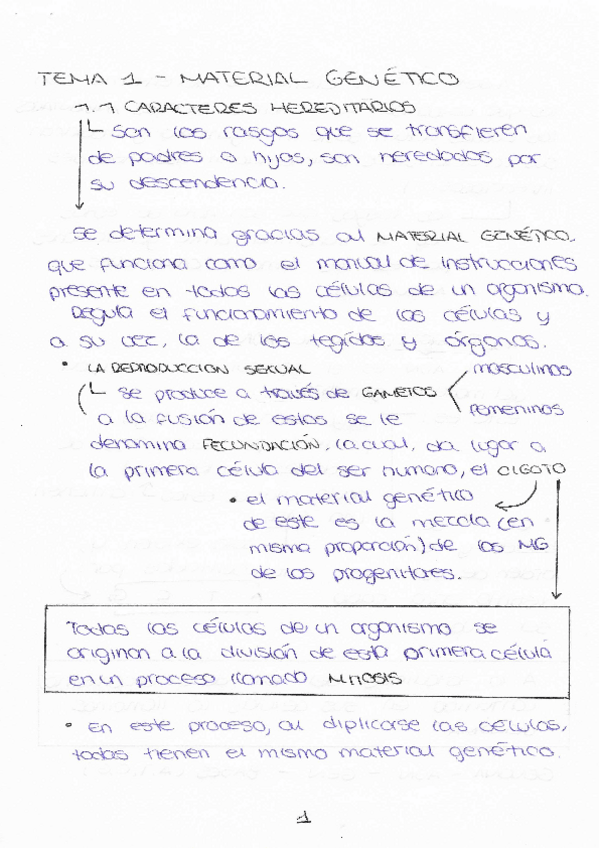 TEMA 1 - MATERIAL GENÉTICO
1.1 CARACTERES HEREDITARIOS
Son los rasgos que se transfieren
de padres a hijos, son heredados por
su descendencia.
Se determina gracias al MATERIAL GENÉTICO,
que funciona como el manual de instrucciones
presente en todas las células de un organismo.
Regula el funcionamiento de las células y
a su vez, la de los tegidos y órganos.
• LA REPRODUCCIÓN SEXUAL
se produce a través de GAMETOS
masculinos
femeninos
a la fusión de estos se le
denomina FECUNDACIÓN, la cual, da lugar a
la primera célula del ser humano, el CIGOTO
• el material genético
de este es la mezcla (en
misma proporción) de los MG
de los progenitores.
Todas las células de un organismo se
originan a la división de esta primera célula
en un proceso llamado MITOSIS
• En este proceso, al diplicarse las células,
todas tienen el mismo material genético.
1